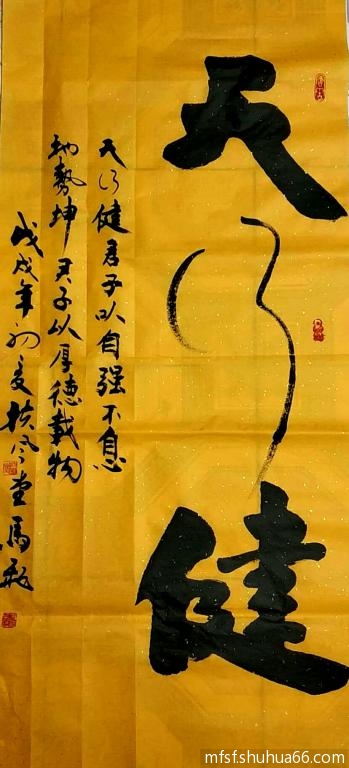 天行健
天行健君子以自强不息
地势坤君子以厚德载物
戊戌年初夏扶风堂马敏
mfsfshuhua66.com